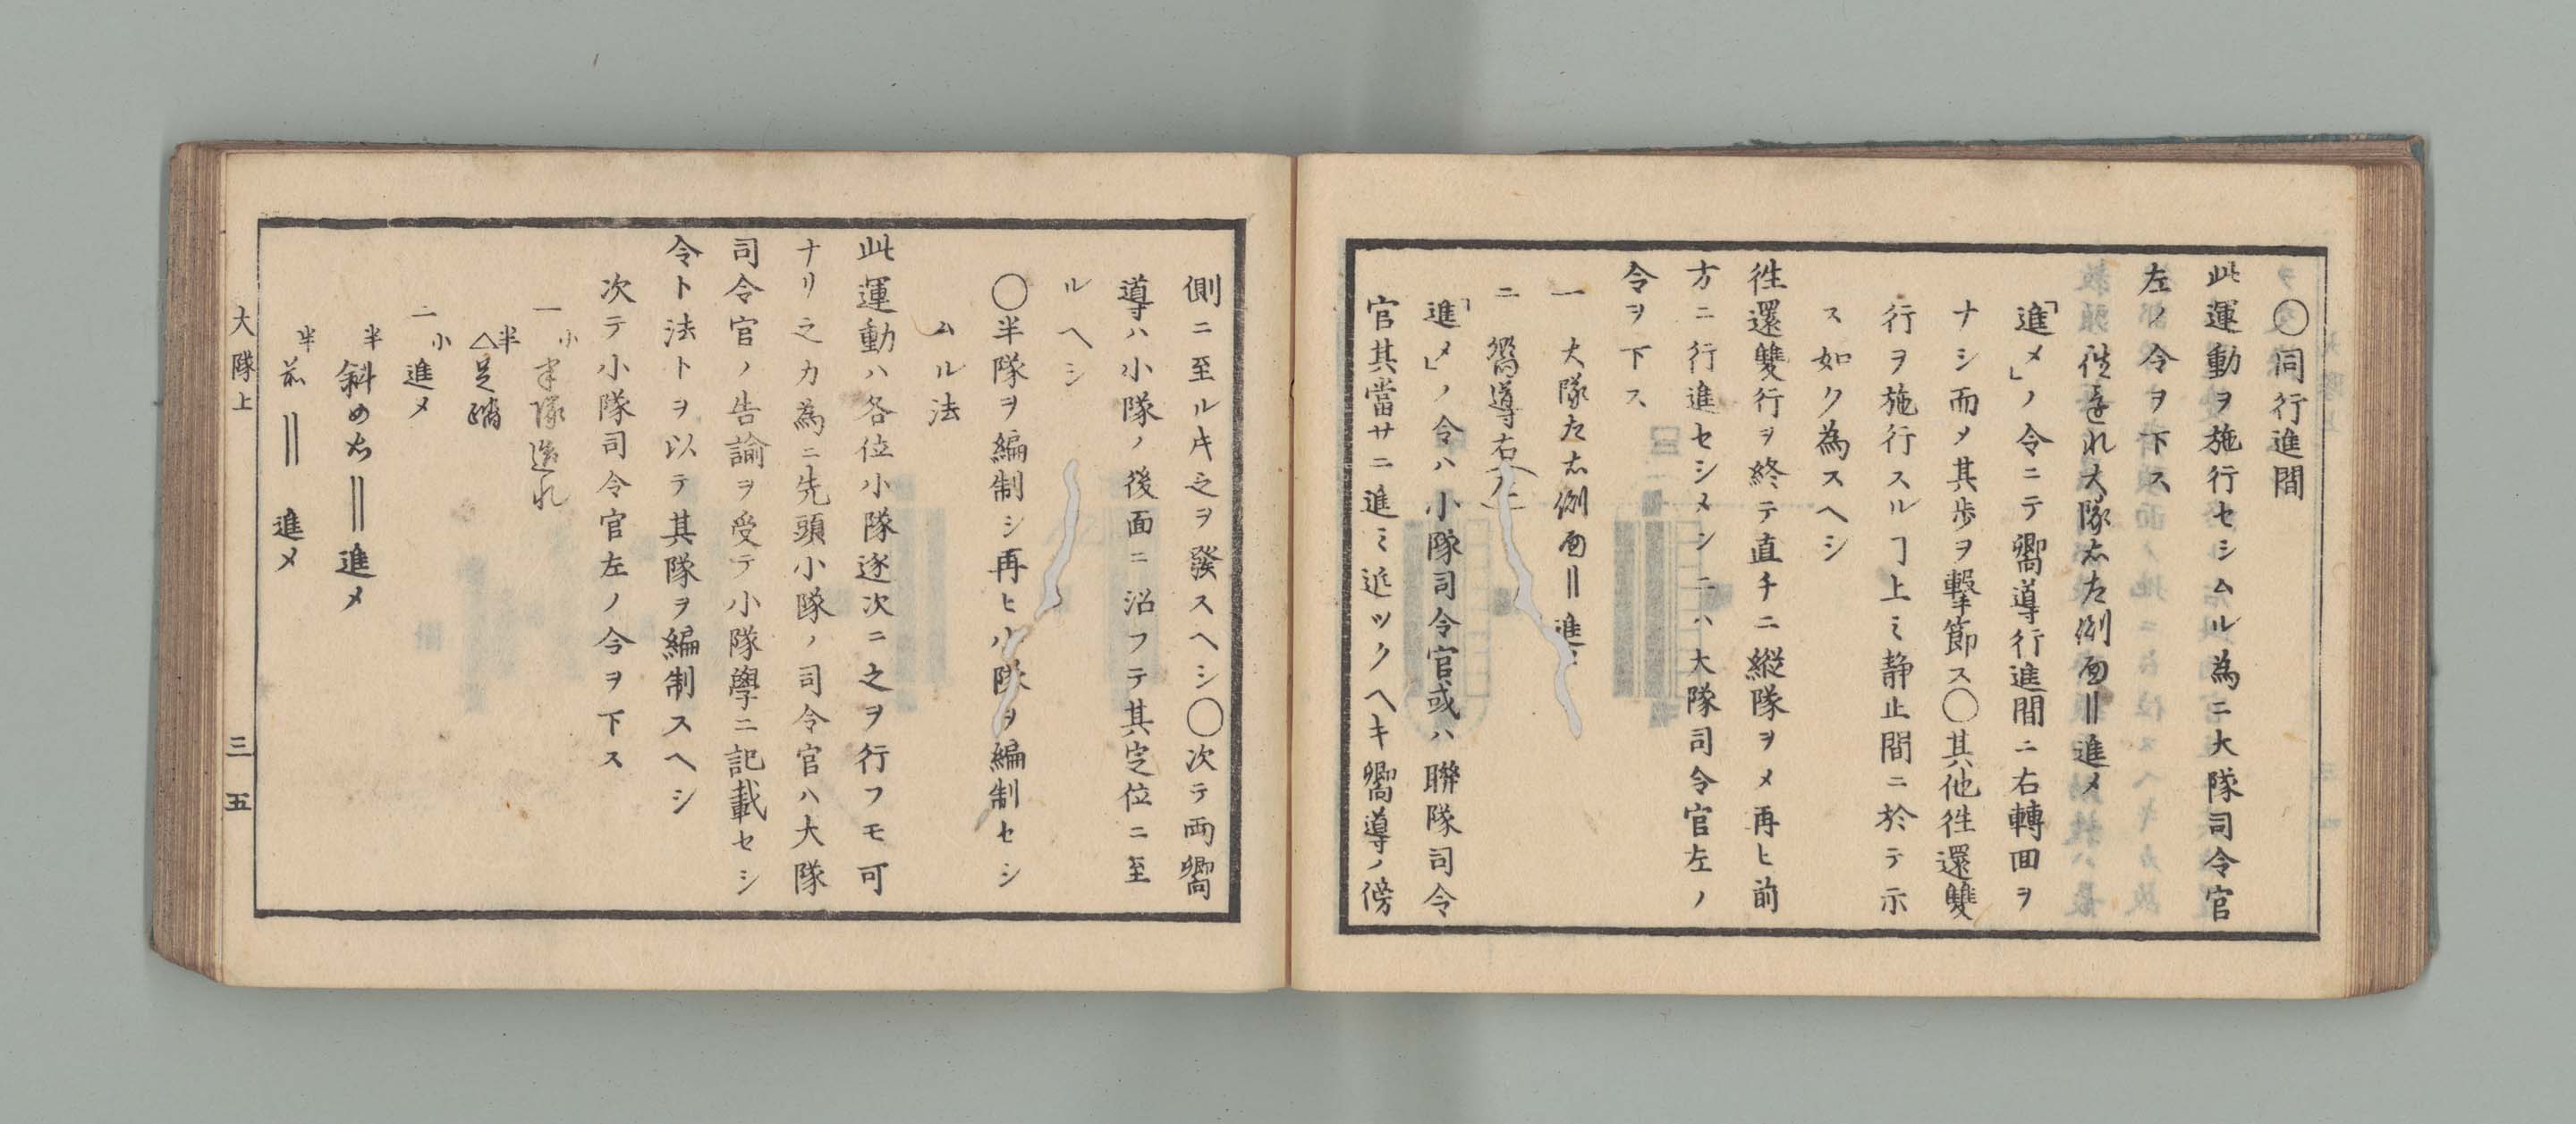 〇同行進間
此運動ヲ施行セシムル為ニ大隊司令官
左ノ令ヲ下ス
大隊右左側面‖進メ
「進メ」ノ令ニテ嚮導行進間ニ右轉回ヲ
ナシ而メ其歩ヲ撃節ス〇其他徃還雙
行ヲ施行スルヿ上ミ静止間ニ於テ示
ス如ク為スヘシ
徃還雙行ヲ終テ直チニ縦隊ヲメ再ヒ前
方ニ行進セシメンニハ大隊司令官左ノ
令ヲ下ス
一 大隊左右側面‖進
二 嚮導右
「進メ」ノ令ハ小隊司令官或ハ聯隊司令
官其當サニ進ミ近ツクヘキ嚮導ノ傍
側ニ至ルキ之ヲ發スヘシ〇次テ両嚮
導ハ小隊ノ後面ニ沿フテ其定位ニ至
ルヘシ
〇半隊ヲ編制シ再ヒ小隊ヲ編制セシ
ムル法
此運動ハ各位小隊逐次ニ之ヲ行フモ可
ナリ之カ為ニ先頭小隊ノ司令官ハ大隊
司令官ノ告諭ヲ受テ小隊學ニ記載セシ
令ト法トヲ以テ其隊ヲ編制スヘシ
次テ小隊司令官左ノ令ヲ下ス
一 小 半隊造れ
半 △足踏
二 小 進メ
半 斜め右‖進メ
半 前‖進メ
大隊上 三五